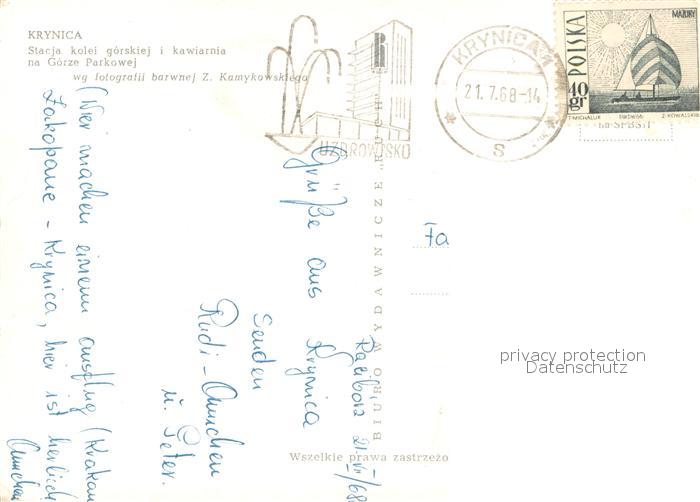 KRYNICA
Stacja kolei górskiej i kawiarnia
na Górze Parkowej
wg fotografii barwnej Z. Kamykowskiego
UZDROWISKO
KRYNICA 1
21.7.68-14
S
POLSKA
MAZURY
40 gr
T. MICHALUK
Z. KOWALSKI
BIURO WYDAWNICZE "RUCH"
Racibórz 21-VII/68.
Grüße aus Krynica
senden
Rudi - Annchen
u. Peter.
(Wir machen einem ausflug (Krakau
Zakopane - Krynica, hier ist herlich
Annchen
Fa
privacy protection
Datenschutz
Wszelkie prawa zastrzeżo